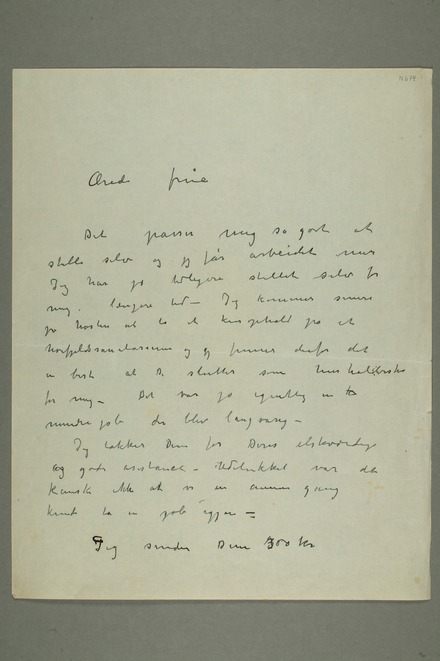 N 674
Ærede frue
Det passer mig så godt at
stelle selv og jeg får arbeidet mer
Jeg har jo tidligere stellet selv for
mig. længere tid – Jeg kommer senere
på høsten at ta et kuropphold på et
høifjeldssanatorium og jeg finner derfor det
er best at De slutter som husholderske
for mig – Det var jo egentlig en
mindre job der blev langvarig –
Jeg takker Dem for Deres elskværdige
og gode assistance – Udelukket var det
kanske ikke at vi en annen gang
kunde ta en job igjen –
Jeg sender Dem 300 kr